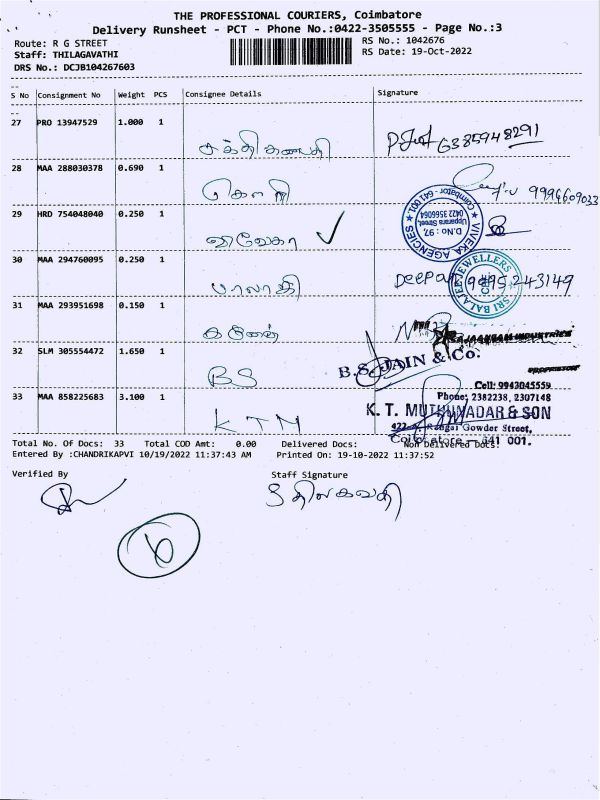 THE PROFESSIONAL COURIERS, Coimbatore
Delivery Runsheet - PCT - Phone No.:0422-3505555 - Page No.:3
Route: R G STREET RS No.: 1042676
Staff: THILAGAVATHI RS Date: 19-Oct-2022
DRS No.: DCJB104267603
S No Consignment No Weight PCS Consignee Details Signature
27 PRO 13947529 1.000 1 சக்தி கணபதி 6385948291
28 MAA 288030378 0.690 1 கௌரி 9994609033
29 HRD 754048040 0.250 1 விவேகா ✓
VIVEKA AGENCIES ★ Coimbatore - 641 001. ★
D.No : 97,
Upparara Street,
0422 3566064
30 MAA 294760095 0.250 1 பாலாஜி Deepa 9895243149
SRI BALAJEE JEWELLERS
CBE
31 MAA 293951698 0.150 1
32 SLM 305554472 1.650 1 BS
B.S. JAIN & Co.
PROPRIETOR
33 MAA 858225683 3.100 1 KTM
Cell: 9943045559
Phone: 2382238, 2307148
K. T. MUTHU NADAR & SON
Rangai Gowder Street,
Coimbatore - 641 001.
Total No. Of Docs: 33 Total COD Amt: 0.00 Delivered Docs: Non Delivered Docs:
Entered By :CHANDRIKAPVI 10/19/2022 11:37:43 AM Printed On: 19-10-2022 11:37:52
Verified By Staff Signature
S திலகவதி
6